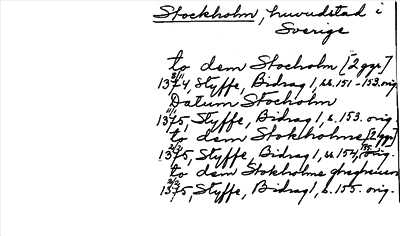 Stockholm, huvudstad i
Sverige
to dem Stocholm [2 ggr]
1374, Styffe, Bidrag 1, ss. 151-153. orig.
Datum Stocholm
1375, Styffe, Bidrag 1, s. 153. orig.
to dem Stokholme [2 ggr]
1375, Styffe, Bidrag 1, ss. 154, 155. orig.
to dem Stokholme
1375, Styffe, Bidrag 1, s. 155. orig.